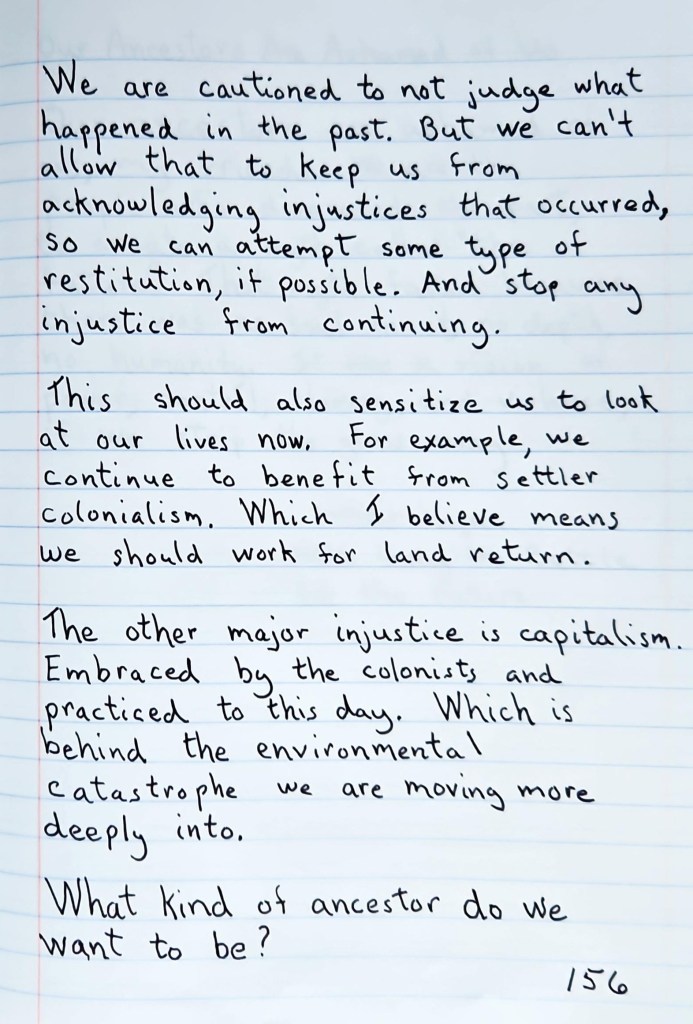 We are cautioned to not judge what
happened in the past. But we can't
allow that to keep us from
acknowledging injustices that occurred,
so we can attempt some type of
restitution, if possible. And stop any
injustice from continuing.
This should also sensitize us to look
at our lives now. For example, we
continue to benefit from settler
colonialism. Which I believe means
we should work for land return.
The other major injustice is capitalism.
Embraced by the colonists and
practiced to this day. Which is
behind the environmental
catastrophe we are moving more
deeply into.
What kind of ancestor do we
want to be?
156